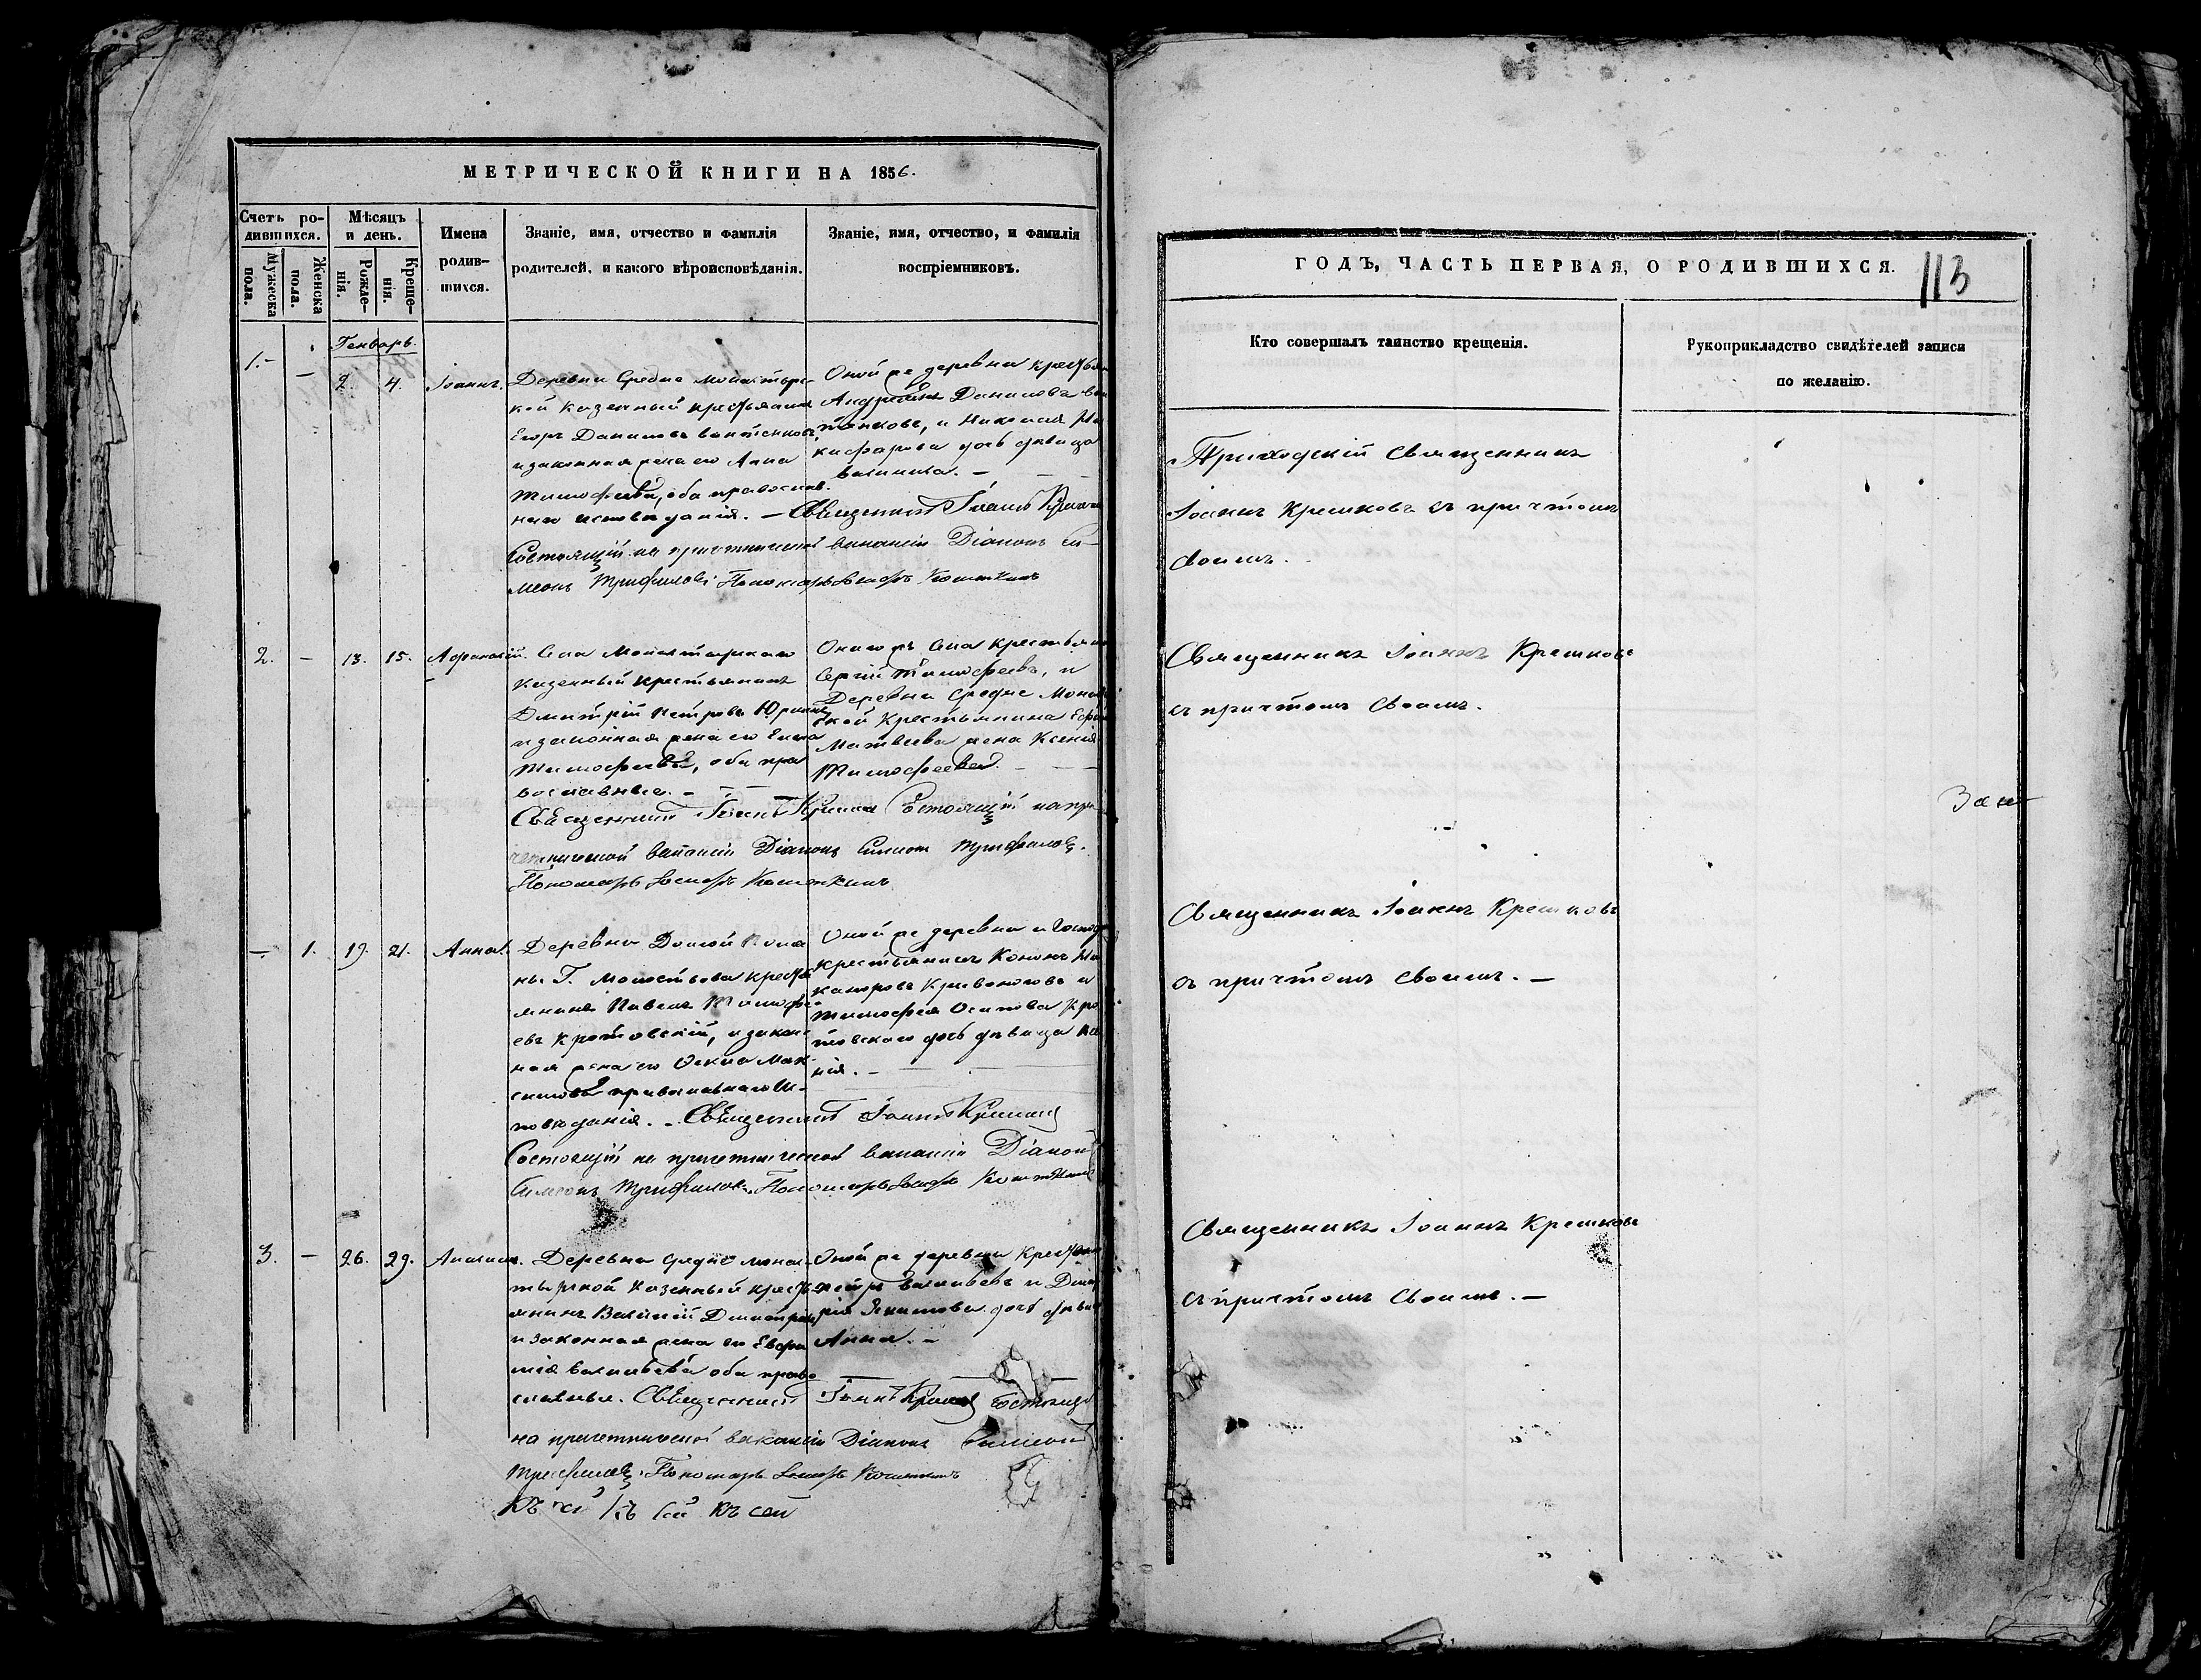 МЕТРИЧЕСКОЙ КНИГИ НА 1856.
Счетъ ро-
дившихся.
Мужеска пола.
Женска пола.
Мѣсяцъ
и день.
Рожде-
нія.
Креще-
нія.
Имена
родив-
шихся.
Званіе, имя, отчество и фамилія
родителей, и какого вѣроисповѣданія.
Званіе, имя, отчество, и фамилія
воспріемниковъ.
Генварь.
1.-
-
2.
4.
Іоаннъ.
Деревни Средне Монастыр-
кой казенный крестьянинъ
Егоръ Даниловъ
и законная жена его Анна
Тимофеева, оба православ
наго исповѣданія. - Священникъ Іоаннъ
Состоящій на причетнической вакансіи Діаконъ Си-
меонъ Трифиловъ Пономарь
Оной же деревни крестьян
Данилова
и Николая Ни
кифорова дочь дѣвица
2.
-
13.
15.
Афанасій.
Села Монастырскаго
казенный крестьянинъ
Дмитрій Петровъ
и законная жена его Елена
Тимофеева, оба пра
вославные. -
Священникъ Іоаннъ Состоящій на при
четнической вакансіи Діаконъ Симеонъ Трифиловъ.
Пономарь
Онаго жъ села крестьянинъ
Сергій Тимофеевъ, и
Деревни Средне Монас
ской крестьянина
Матвеева жена Ксенія
Тимофеева. -
-
1.
19.
21.
Анна.
Деревни
Г. крестья
янинъ Павелъ Тимофе
евъ Кротовскій, и закон
ная жена его Мак
симова православнаго ис-
повѣданія. - Священникъ Іоаннъ
Состоящій на причетнической вакансіи Діаконъ
Симеонъ Трифиловъ. Пономарь
Оной же деревни и Господ
крестьянинъ Кононъ Ни
каноровъ Кривоноговъ и
Тимофея Осипова Кро
товскаго дочь дѣвица
нія. -
3.
-
26.
29.
Деревни Средне Монас-
тырской казенный крестья
янинъ Василій Дмитріев
и законная жена его Евфи
мія Васильева оба право
славные. Священникъ Іоаннъ Состоящій
на причетнической вакансіи Діаконъ Симеонъ
Трифиловъ. Пономарь
Оной же деревни крестьян
Петръ Васильевъ и Дмит
рія дочь дѣвиц
Анна. -
Къ сей
ГОДЪ, ЧАСТЬ ПЕРВАЯ, О РОДИВШИХСЯ.
113
Кто совершалъ таинство крещенія.
Рукоприкладство свидѣтелей записи
по желанію.
Приходскій Священникъ
Іоаннъ Крешковъ съ причтомъ
своимъ.
Священникъ Іоаннъ Крешковъ
съ причтомъ своимъ.
Священникъ Іоаннъ Крешковъ
съ причтомъ своимъ. -
Священникъ Іоаннъ Крешковъ
съ причтомъ своимъ. -